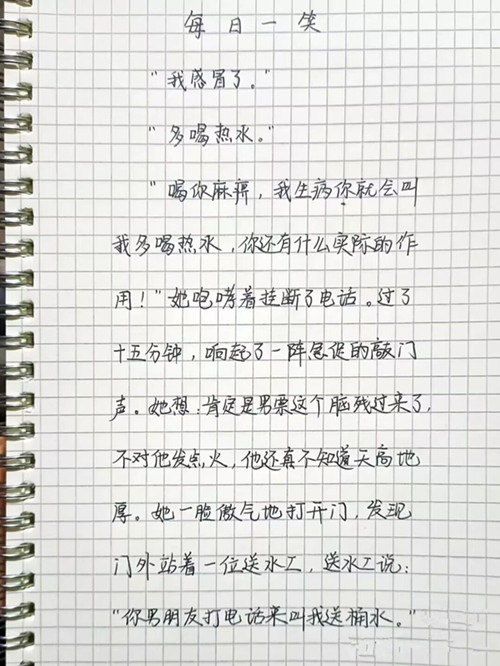 每日一笑
"我感冒了。"
"多喝热水。"
"喝你麻痹，我生病你就会叫
我多喝热水，你还有什么实际的作
用！"她咆哮着挂断了电话。过了
十五分钟，响起了一阵急促的敲门
声。她想：肯定是男票这个脑残过来了，
不对他发点火，他还真不知道天高地
厚。她一脸傲气地打开门，发现
门外站着一位送水工，送水工说：
"你男朋友打电话来叫我送桶水。"